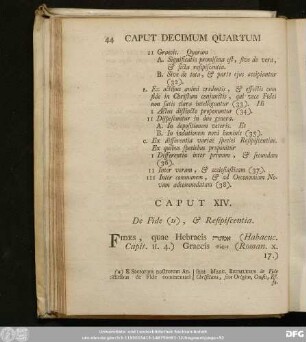 44 CAPUT DECIMUM QUARTUM
II Gratiæ. Quarum
A. Significatio præmissa est, sive de vera,
& ficta resipiscentia.
B. Sive de tota, & parte ejus accipiantur
(32).
1. Ex actibus animi credentis, & effectis cum
fide in Christum conjunctis, qui voce Fidei
non satis clare intelliguntur (33). Hi
1 Actus distincte proponuntur (34).
II Disponuntur in duo genera.
A. In depositionem veteris. Et
B. In indutionem novi hominis (35).
c. Ex differentia variæ speciei Resipiscentiæ.
Ex quibus speciebus proponitur
I Differentia inter primam, & secundam
(36).
II Inter veram, & ecclesiasticam (37).
III Inter communem, & ad Oeconomiam No-
vam accommodatam (38).
CAPUT XIV.
De Fide (a), & Resipiscentia.
FIDES, quae Hebraeis (Habacuc.
Capit. II. 4.) Graecis (Roman. X.
17.)